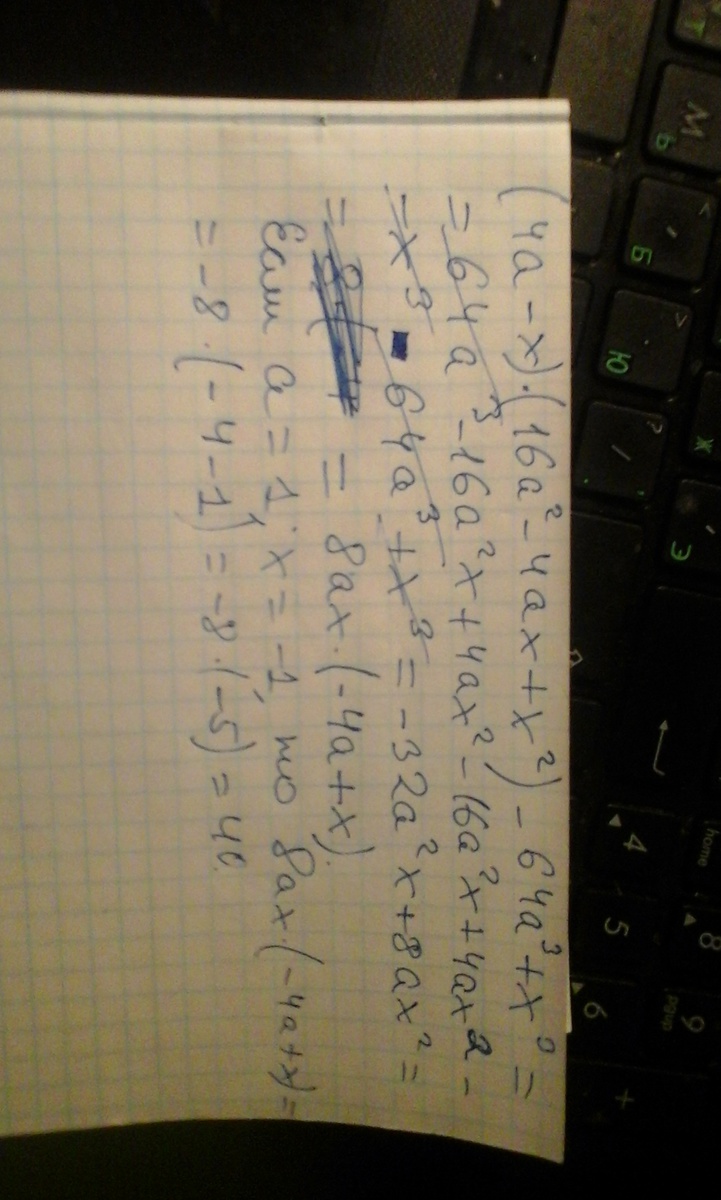 (4a-x)·(16a²-4ax+x²)-64a³+x³=
=64a³-16a²x+4ax²-16a²x+4ax²-
-x³-64a³+x³=-32a²x+8ax²=
= =8ax·(-4a+x).
Если a=1, x=-1, то 8ax·(-4a+x)=
=-8·(-4-1)=-8·(-5)=40.
М Ь
< , Б
> . Ю
? /
Ж
Э
home
4
5
6
8
9
pgup
+